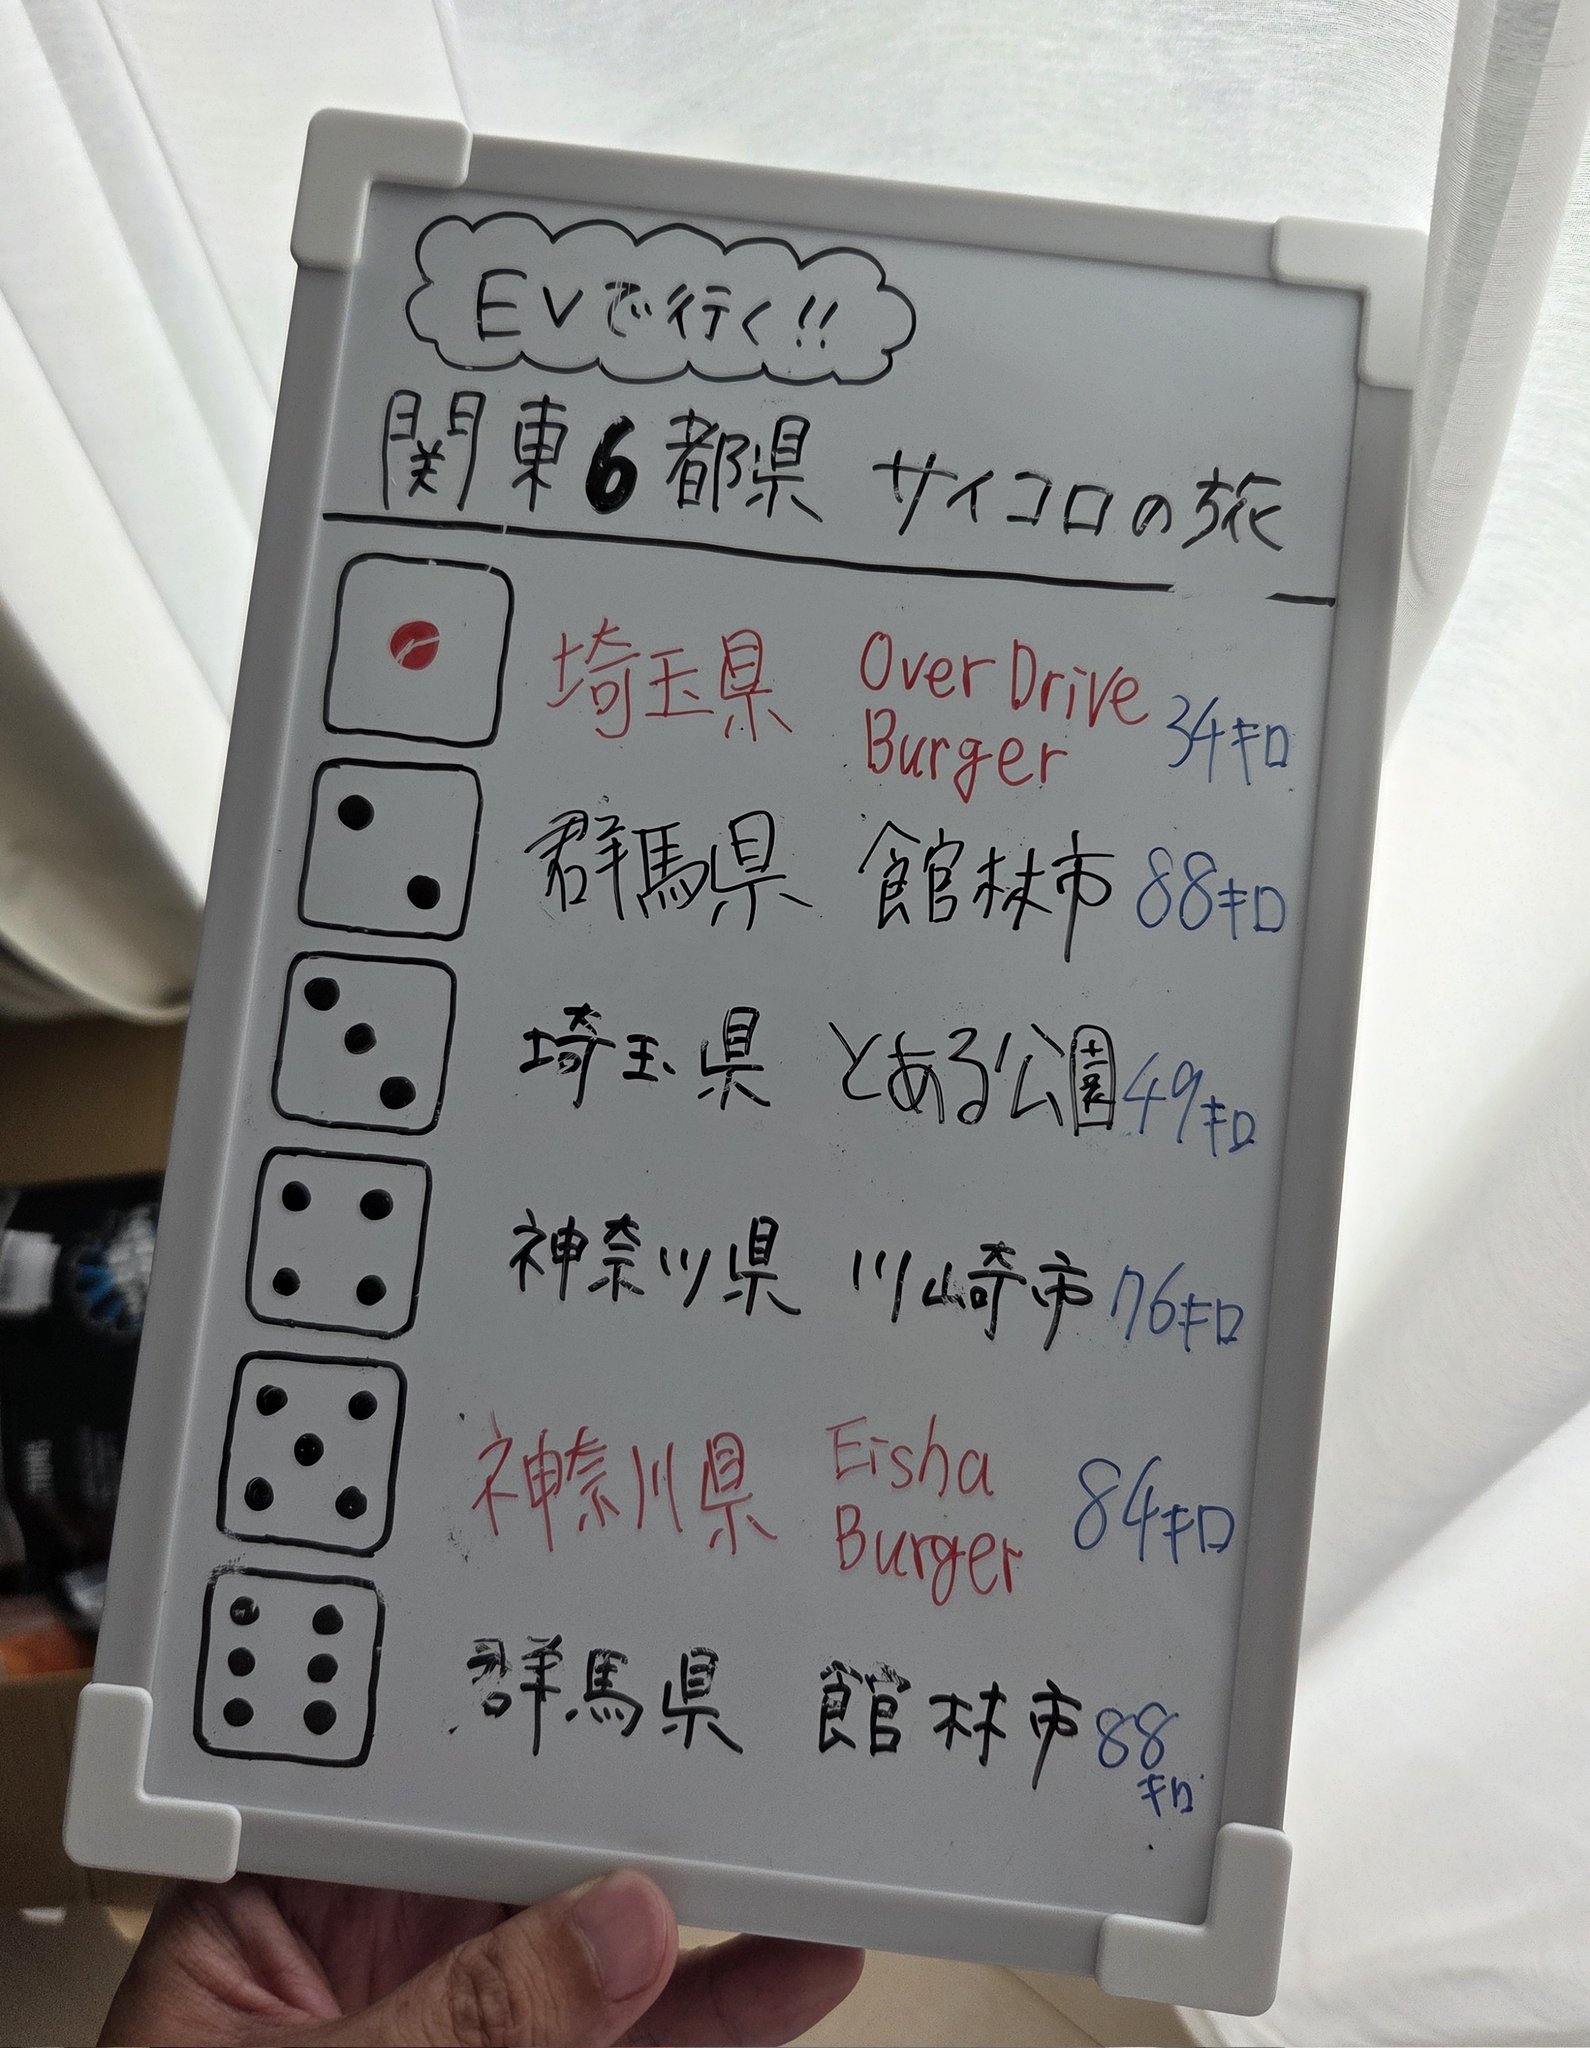 EVで行く!!
関東6都県 サイコロの旅
埼玉県 Over Drive Burger 34キロ
群馬県 館林市 88キロ
埼玉県 とある公園 49キロ
神奈川県 川崎市 76キロ
神奈川県 Eisha Burger 84キロ
群馬県 館林市 88キロ